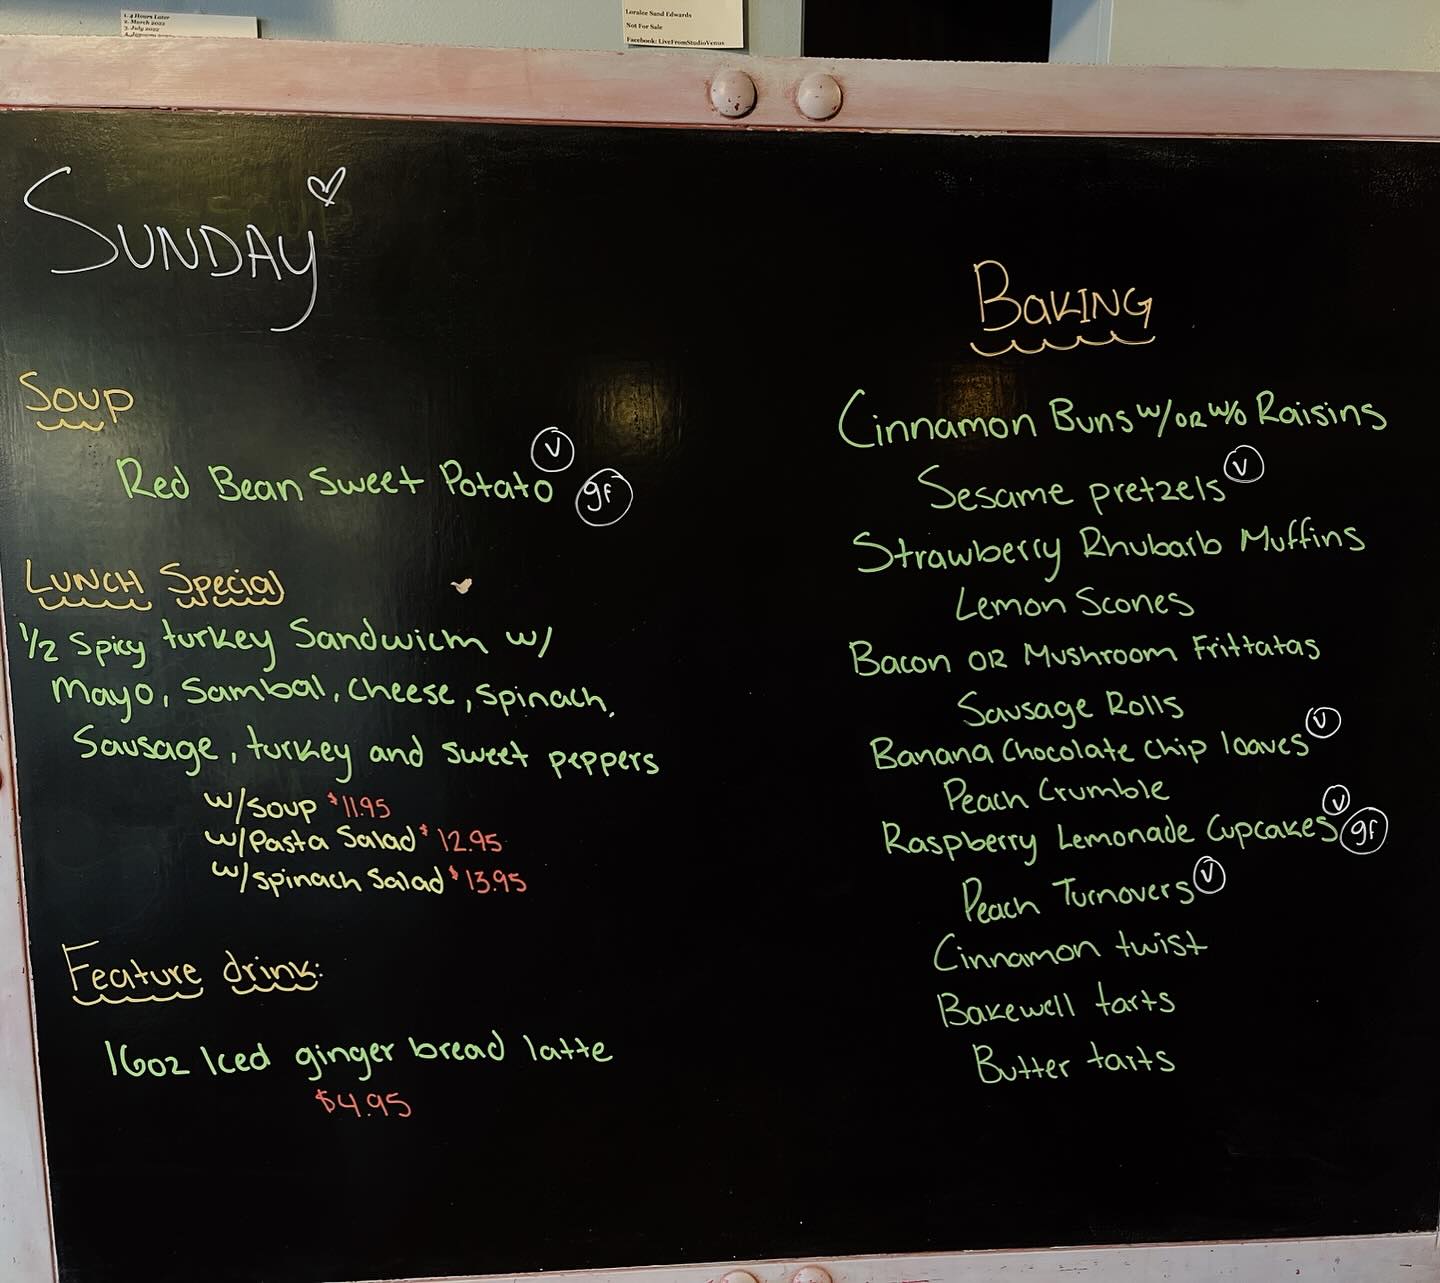 1. 4 Hours Later
2. March 2022
3. July 2022
Loralee Sand Edwards
Not For Sale
Facebook: LiveFromStudioVenus
SUNDAY
Soup
Red Bean Sweet Potato V gf
LUNCH Special
1/2 Spicy turkey Sandwich w/
Mayo, Sambal, Cheese, Spinach,
Sausage, turkey and sweet peppers
w/soup $11.95
w/Pasta Salad $12.95
w/spinach Salad $13.95
Feature drink:
16oz Iced ginger bread latte
$4.95
BaKING
Cinnamon Buns w/ OR w/o Raisins
Sesame pretzels V
Strawberry Rhubarb Muffins
Lemon Scones
Bacon OR Mushroom Frittatas
Sausage Rolls
Banana Chocolate chip loaves V
Peach Crumble
Raspberry Lemonade Cupcakes V gf
Peach Turnovers V
Cinnamon twist
Bakewell tarts
Butter tarts